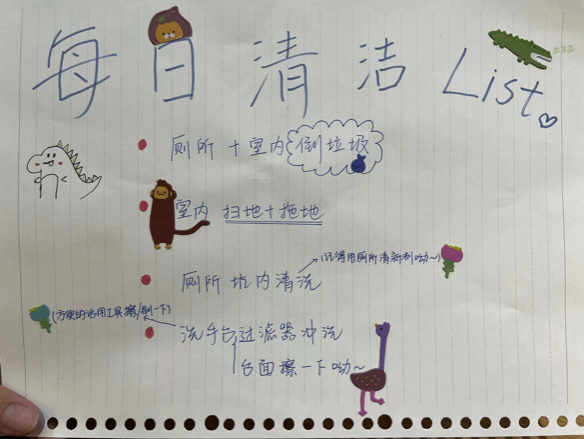 每日清洁 List
厕所+室内 倒垃圾
室内 扫地+拖地
厕所坑内清洗 (记得用厕所清新剂呦~)
(方便的话用工具擦/刷一下) 洗手台过滤器冲洗
台面擦一下呦~